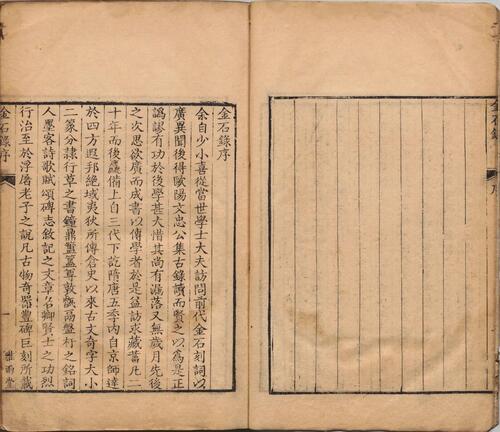 金石錄序
余自少小喜從當世學士大夫訪問前代金石刻詞以
廣異聞後得歐陽文忠公集古錄讀而賢之以為是正
譌謬有功於後學甚大惜其尚有漏落又無歲月先後
之次思欲廣而成書以傳學者於是益訪求藏蓄凡二
十年而後麤備上自三代下訖隋唐五季內自京師達
於四方遐邦絕域夷狄所傳倉史以來古文奇字大小
二篆分隸行草之書鐘鼎簠簋尊敦甗鬲盤杅之銘詞
人墨客詩歌賦頌碑志敘記之文章名卿賢士之功烈
行治至於浮屠老子之說凡古物奇器豐碑巨刻所載
金石錄序
一
雅雨堂